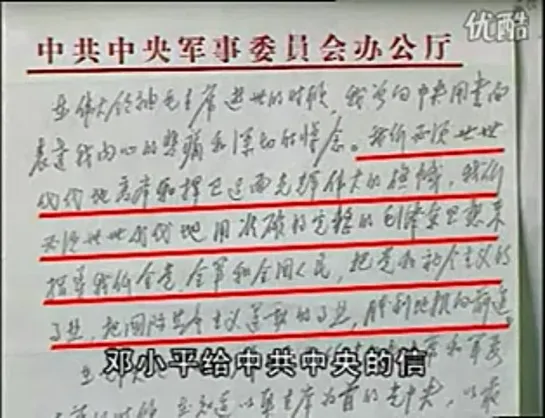 优酷
中共中央军事委员会办公厅
在伟大领袖毛主席逝世的时候，我曾向中央用书面
表达我内心的悲痛和深切的悼念。我们必须世世
代代地高举和捍卫这面光辉伟大的旗帜，我们
必须世世代代地用准确的完整的毛泽东思想来
指导我们全党、全军和全国人民，把党和社会主义的
事业，把国际共产主义运动的事业，胜利地推向前进。
邓小平给中共中央的信